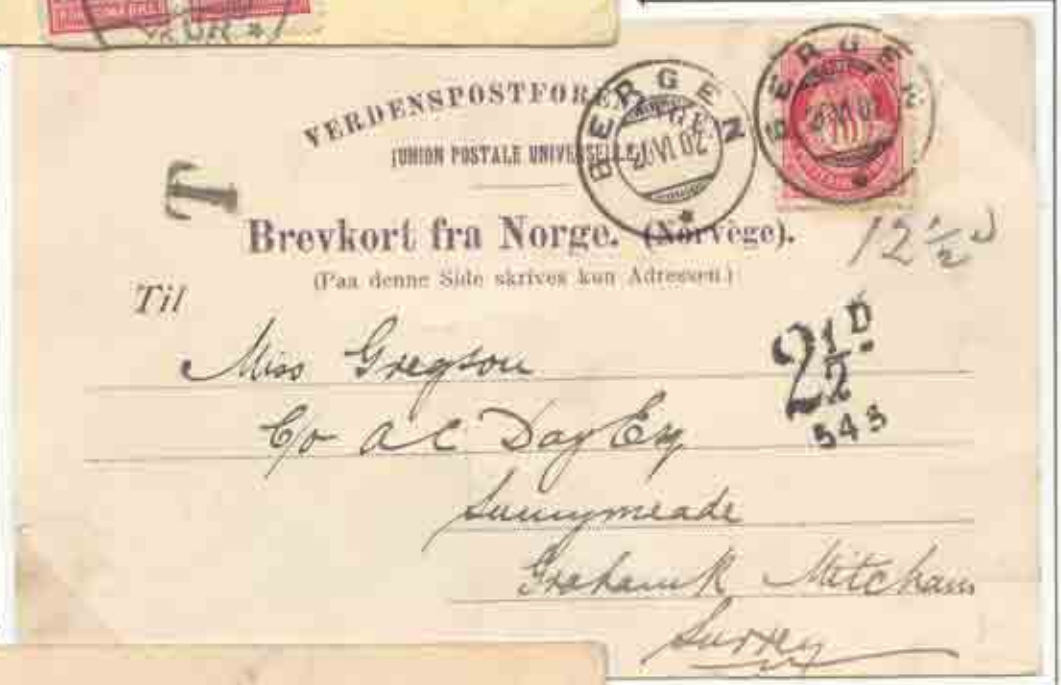 VERDENSPOSTFOREN
(UNION POSTALE UNIVERSELLE)
BERGEN
20 VI 02
BERGEN
VI 02
10
T
Brevkort fra Norge. (Norvège).
(Paa denne Side skrives kun Adressen.)
12½
Til
2½D.
543
Miss Gregson
C/o A C Day Esq
Sunnymeade
Graham R Mitcham
Surrey